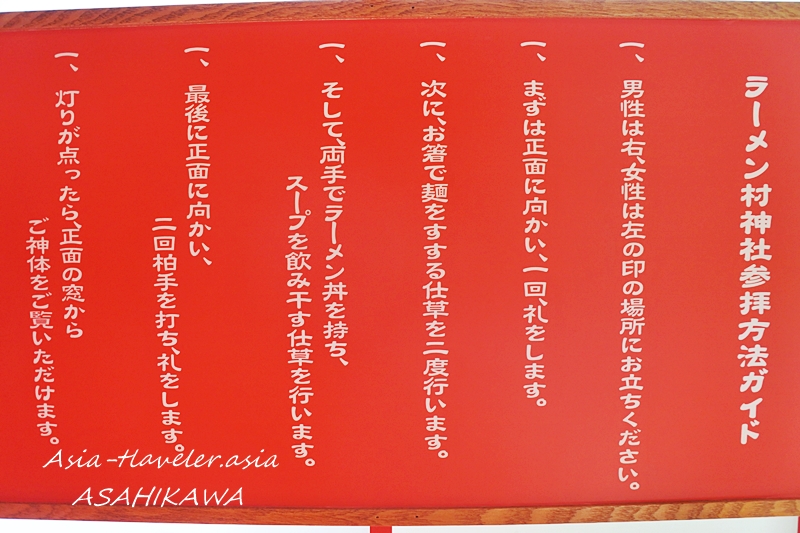 ラーメン村神社参拝方法ガイド
一、男性は右、女性は左の印の場所にお立ちください。
一、まずは正面に向かい、一回、礼をします。
一、次に、お箸で麺をすする仕草を二度行います。
一、そして、両手でラーメン丼を持ち、
スープを飲み干す仕草を行います。
一、最後に正面に向かい、
二回柏手を打ち、礼をします。
一、灯りが点ったら、正面の窓から
ご神体をご覧いただけます。
Asia-tlaveler.asia
ASAHIKAWA